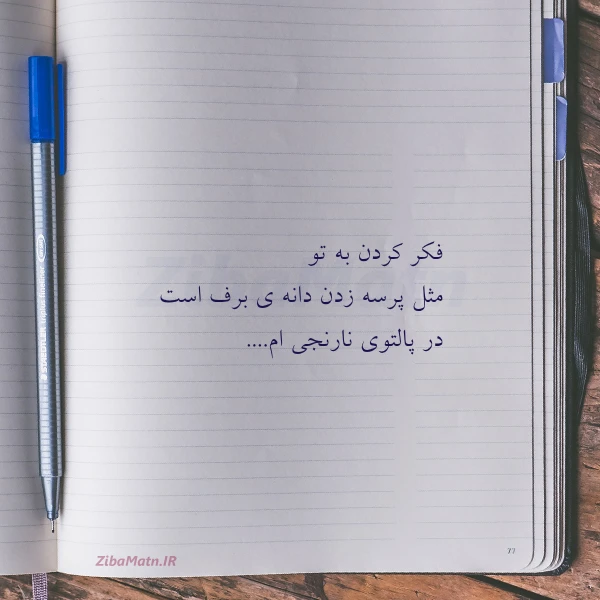 فکر کردن به تو
مثل پرسه زدن دانه ی برف است
در پالتوی نارنجی ام....
ZibaMatn.IR
77